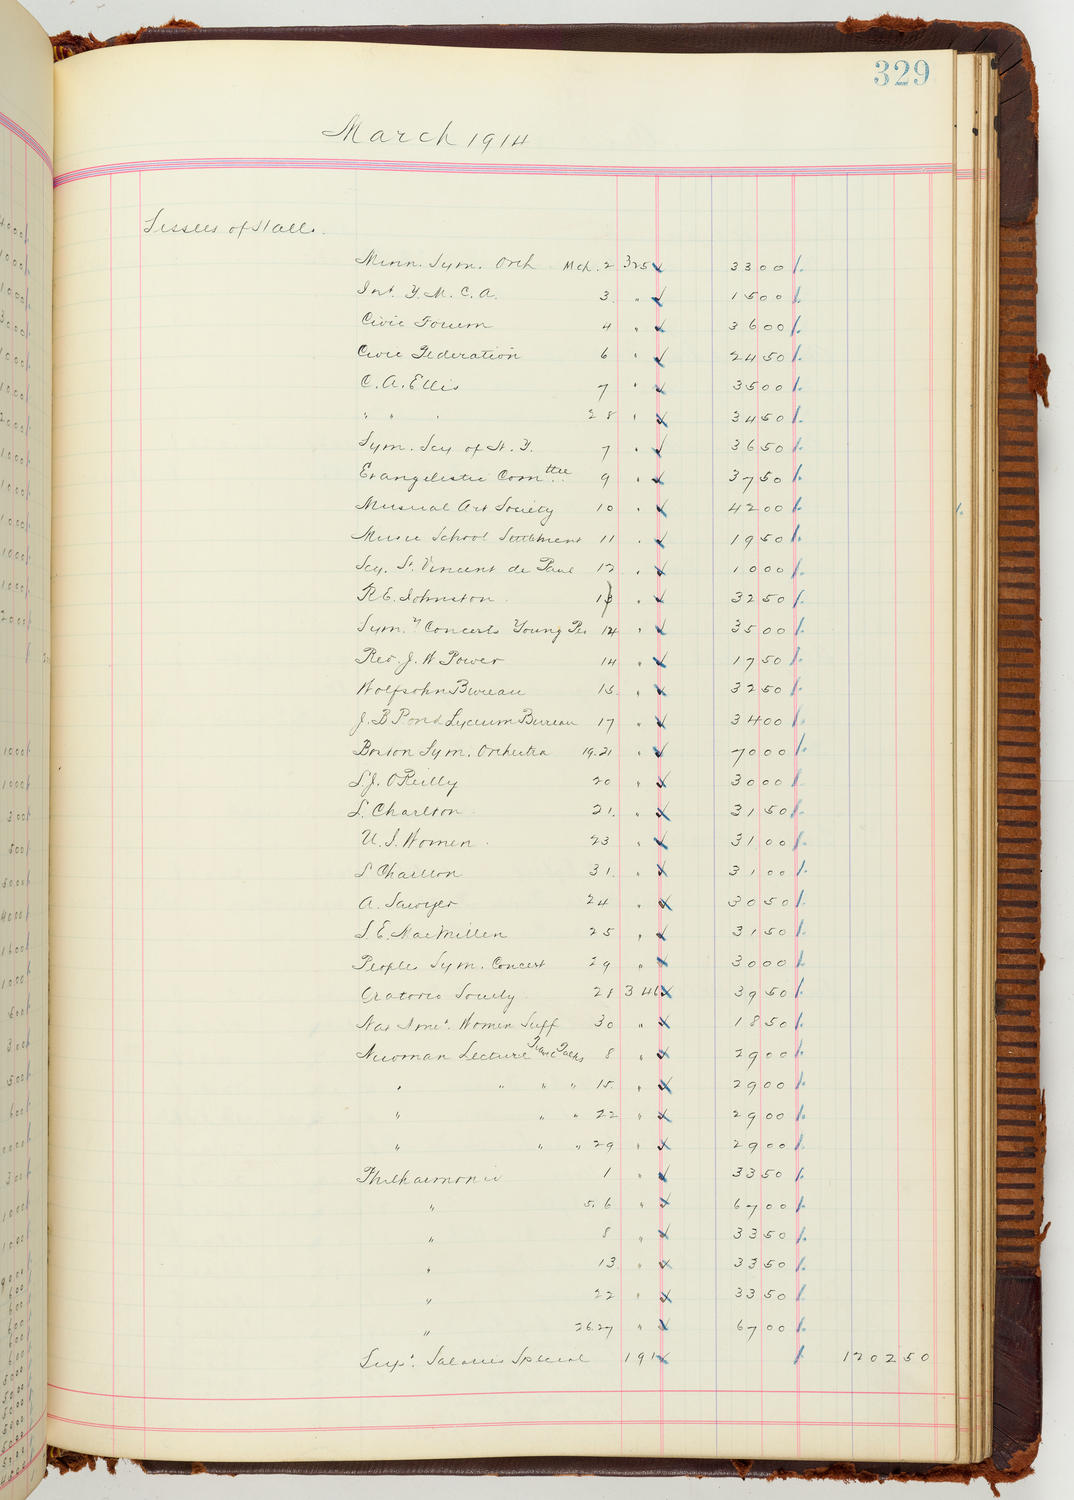 329
March 1914
Lessees of Hall.
Minn. Sym. Orch Mch. 2 325 3300
Int. Y. M. C. A. 3. " 1500
Civic Forum 4 " 3600
Civic Federation 6 " 2450
C. A. Ellis 7 " 3500
" " " 28 " 3450
Sym. Scy of N. Y. 7 " 3650
Evangelistic Comttee 9 " 3750
Musical Art Society 10 " 4200
Music School Settlement 11 " 1950
Scy. St. Vincent de Paul 12 " 1000
R. E. Johnston 13 " 3250
Sym. Concerts Young Pe 14 " 3500
Rev. J. W Power 14 " 1750
Wolfsohn Bureau 15. " 3250
J. B Pond Lyceum Bureau 17 " 3400
Boston Sym. Orchestra 19.21 " 7000
S. J. O'Reilly 20 " 3000
L. Charlton 21. " 3150
U. S. Women. 23 " 3100
L Charlton 31. " 3100
A. Sawyer 24 " 3050
S. E. MacMillen 25 " 3150
Peoples Sym. Concert 29 " 3000
Oratorio Society 28 346 3950
Nat Amer. Women Suff 30 " 1850
Newman Lecture Travel Talks 8 " 2900
" " " " 15. " 2900
" " " 22 " 2900
" " " 29 " 2900
Philharmonic 1 " 3350
" 5.6 " 6700
" 8 " 3350
" 13 " 3350
" 22 " 3350
" 26.27 " 6700
Salaries Special 191 120250